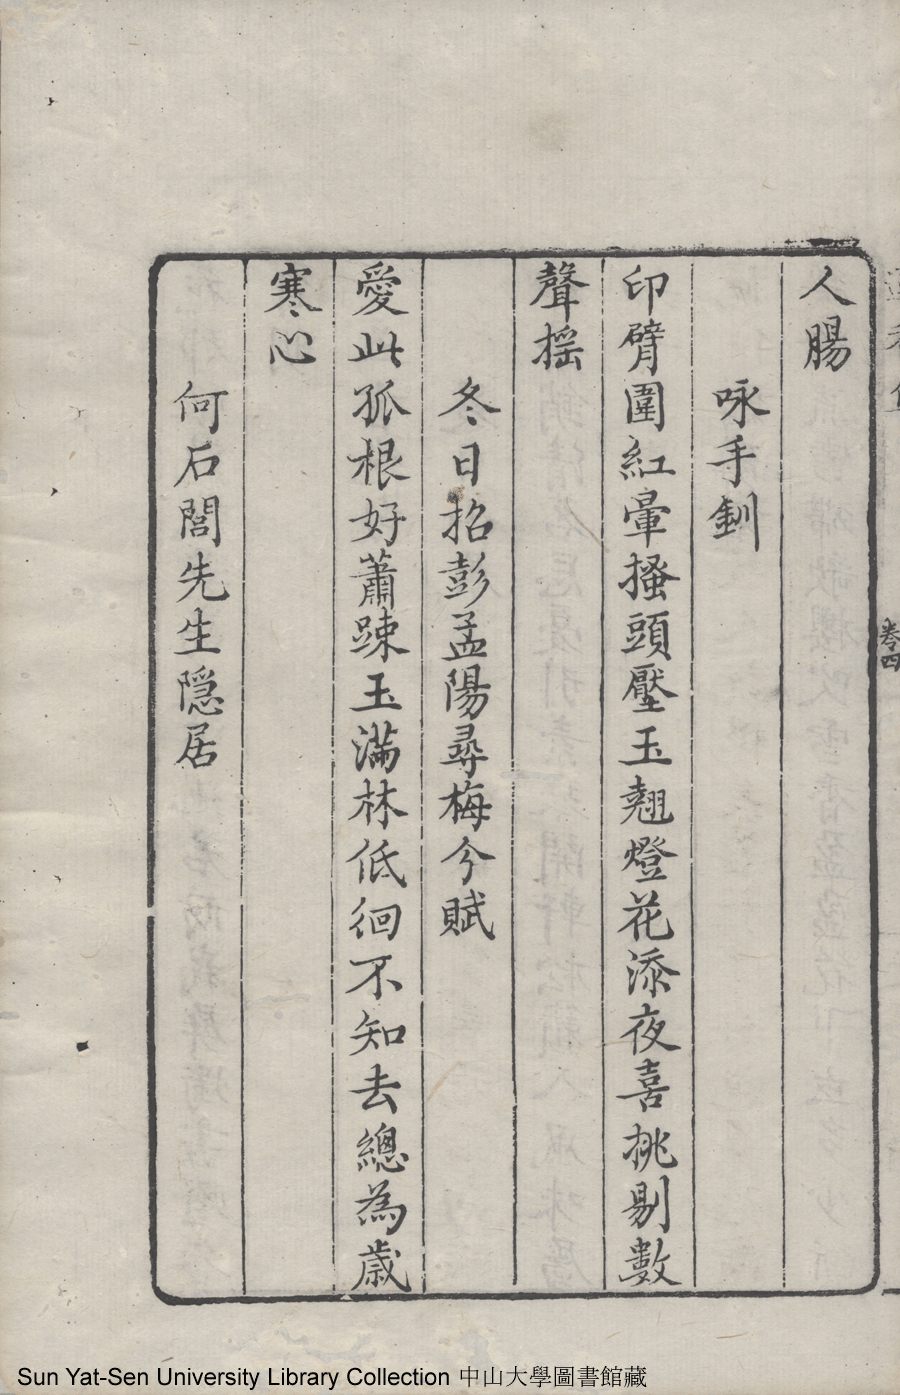 人腸
咏手釧
印臂圍紅暈搔頭壓玉翹燈花添夜喜挑剔數
聲摇
冬日招彭孟陽尋梅分賦
愛此孤根好蕭踈玉滿林低徊不知去總為歲
寒心
何石閭先生隠居
卷四
Sun Yat-Sen University Library Collection 中山大學圖書館藏